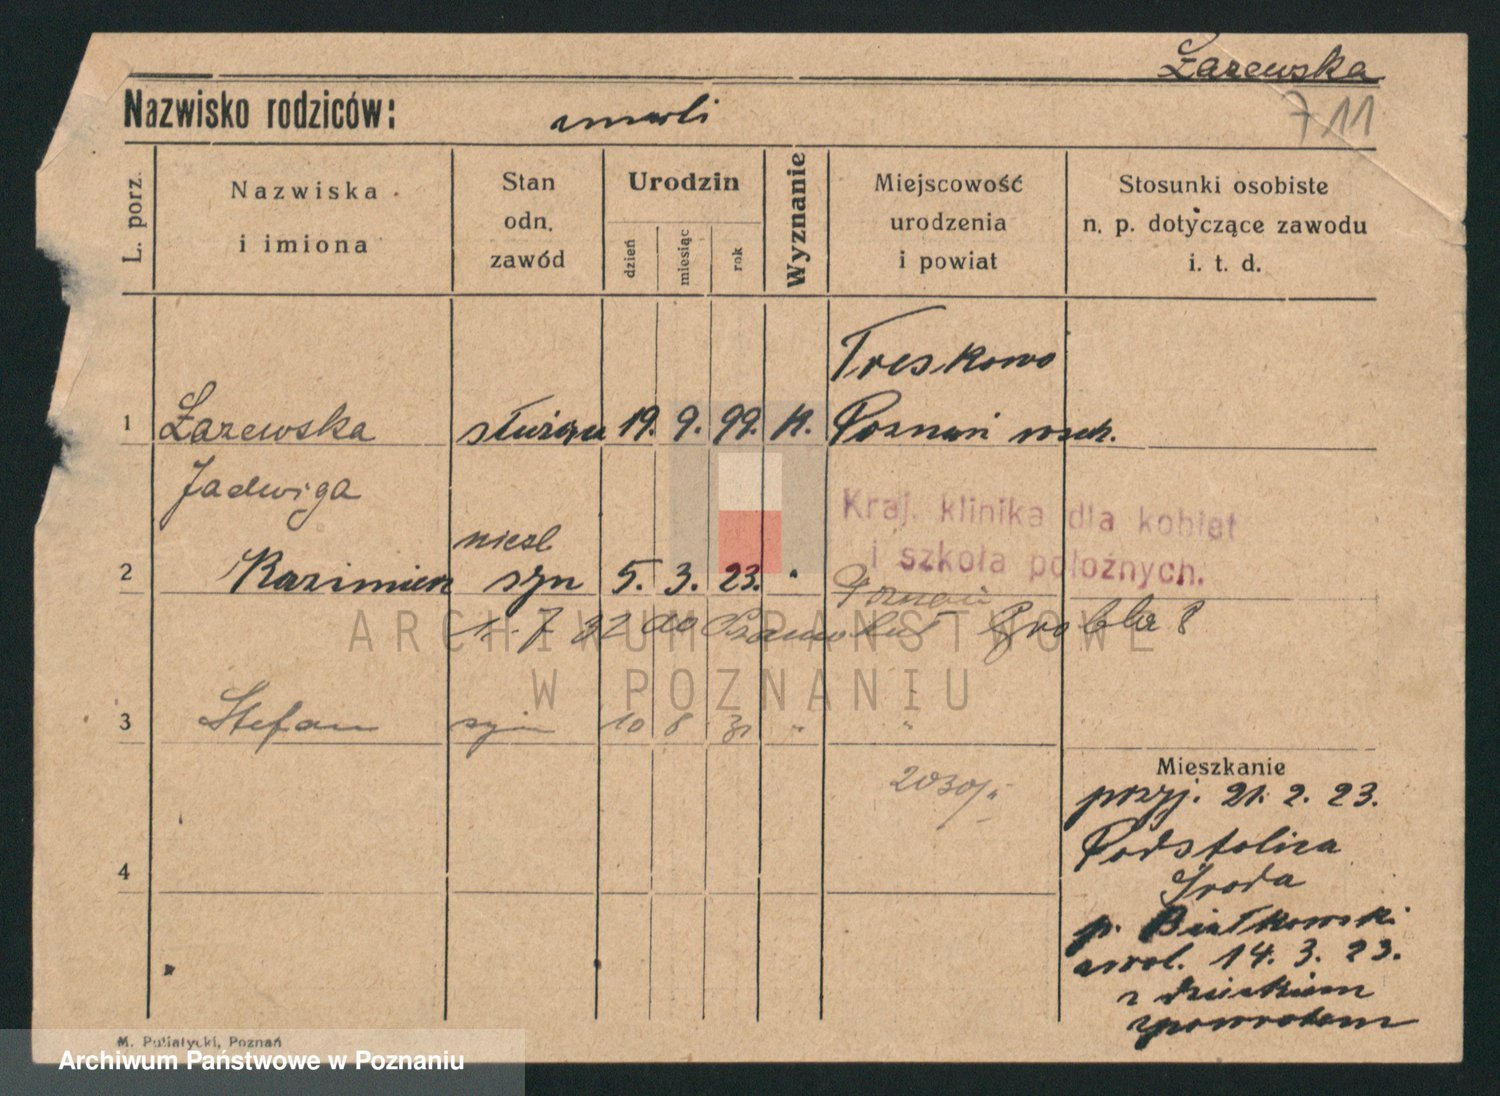 Łazewska
711
Nazwisko rodziców: zmarli
L. porz.
Nazwiska
i imiona
Stan
odn.
zawód
Urodzin
dzień
miesiąc
rok
Wyznanie
Miejscowość
urodzenia
i powiat
Stosunki osobiste
n. p. dotyczące zawodu
i. t. d.
Treskowo
1 Łazewska służąca 19. 9. 99. K. Poznań wsch.
Jadwiga
Kraj. klinika dla kobiet
i szkoła położnych.
nieśl
2 Kazimierz syn 5. 3. 23. "
Poznań
1. 7 32 do Grobla 8
3 Stefan syn 10 8 31 " "
2030/
4
Mieszkanie
przyj. 21. 2. 23.
Podstolica
Środa
p. Białkowski
zwol. 14. 3. 23.
z dzieckiem
zpowrotem
M. Putiatycki, Poznań
ARCHIWUM PAŃSTWOWE
W POZNANIU
Archiwum Państwowe w Poznaniu